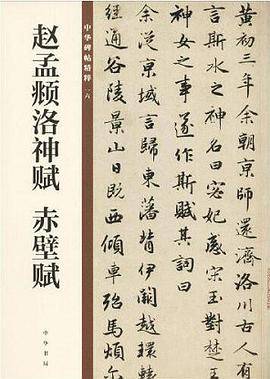 赵孟頫洛神赋 赤壁赋
中华碑帖精粹 一六
中华书局
黄初三年余朝京師還濟洛川古人有
言斯水之神名曰宓妃感宋玉對楚
神女之事遂作斯賦其詞曰
余從京域言歸東藩背伊闕越轘
經通谷陵景山日既西傾車殆馬煩尔